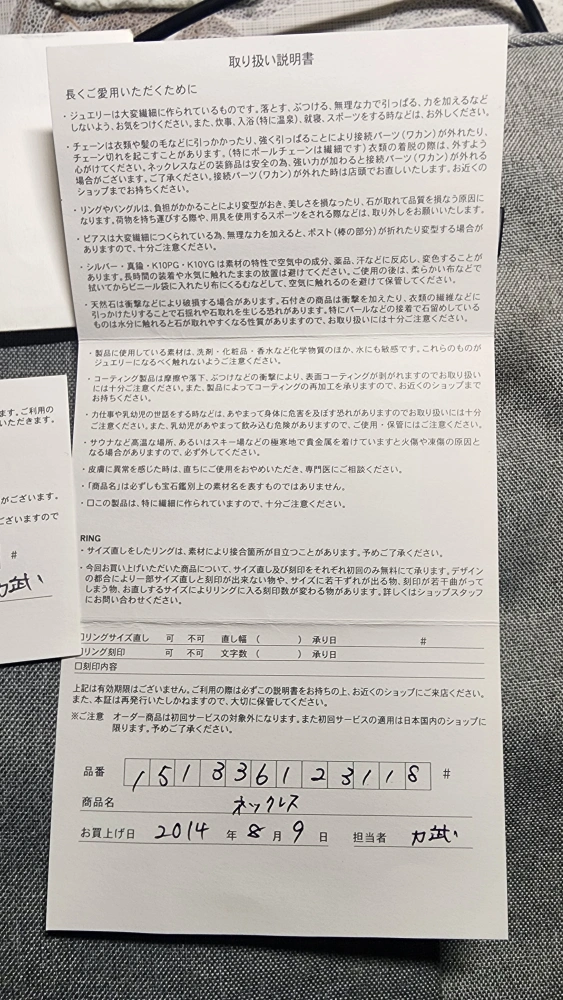 取り扱い説明書
長くご愛用いただくために
・ジュエリーは大変繊細に作られているものです。落とす、ぶつける、無理な力で引っぱる、力を加えるなど
しないよう、お気をつけください。また、炊事、入浴(特に温泉)、就寝、スポーツをする時などは、お外しください。
・チェーンは衣類や髪の毛などに引っかかったり、強く引っぱることにより接続パーツ(ワカン)が外れたり、
チェーン切れを起こすことがあります。(特にボールチェーンは繊細です)衣類の着脱の際は、外すよう
心がけてください。ネックレスなどの装飾品は安全の為、強い力が加わると接続パーツ(ワカン)が外れる
場合がございます。ご了承ください。接続パーツ(ワカン)が外れた時は店頭でお直しいたします。お近くの
ショップまでお持ちください。
・リングやバングルは、負担がかかることにより変型がおき、美しさを損なったり、石が取れて品質を損なう原因に
なります。荷物を持ち運びする際や、用具を使用するスポーツをされる際などは、取り外しをお願いいたします。
・ピアスは大変繊細につくられている為、無理な力を加えると、ポスト(棒の部分)が折れたり変型する場合が
ありますので、十分ご注意ください。
・シルバー・真鍮・K10PG・K10YGは素材の特性で空気中の成分、薬品、汗などに反応し、変色することが
あります。長時間の装着や水気に触れたままの放置は避けてください。ご使用の後は、柔らかい布などで
拭いてからビニール袋に入れたり布にくるむなどして、空気に触れるのを避けて保管してください。
・天然石は衝撃などにより破損する場合があります。石付きの商品は衝撃を加えたり、衣類の繊維などに
引っかけたりすることで石揺れや石取れを生じる恐れがあります。特にパールなどの接着で石留めしている
ものは水分に触れると石が取れやすくなる性質がありますので、お取り扱いには十分ご注意ください。
・製品に使用している素材は、洗剤・化粧品・香水など化学物質のほか、水にも敏感です。これらのものが
ジュエリーになるべく触れないようご注意ください。
・コーティング製品は摩擦や落下、ぶつけなどの衝撃により、表面コーティングが剥がれますのでお取り扱い
には十分ご注意ください。また、製品によってコーティングの再加工を承りますので、お近くのショップまで
お持ちください。
・力仕事や乳幼児の世話をする時などは、あやまって身体に危害を及ぼす恐れがありますのでお取り扱いには十分
ご注意ください。また、乳幼児があやまって飲み込む危険がありますので、ご使用・保管にはご注意ください。
・サウナなど高温な場所、あるいはスキー場などの極寒地で貴金属を着けていますと火傷や凍傷の原因と
なる場合がありますので、必ず外してください。
・皮膚に異常を感じた時は、直ちにご使用をおやめいただき、専門医にご相談ください。
・「商品名」は必ずしも宝石鑑別上の素材名を表すものではありません。
・□この製品は、特に繊細に作られていますので、十分ご注意ください。
RING
・サイズ直しをしたリングは、素材により接合箇所が目立つことがあります。予めご了承ください。
・今回お買い上げいただいた商品について、サイズ直し及び刻印をそれぞれ初回のみ無料にて承ります。デザイン
の都合により一部サイズ直しと刻印が出来ない物や、サイズに若干ずれが出る物、刻印が若干曲がって
しまう物、お直しするサイズによりリングに入る刻印数が変わる物があります。詳しくはショップスタッフ
にお問い合わせください。
□リングサイズ直し 可 不可 直し幅 ( ) 承り日 #
□リング刻印 可 不可 文字数 ( ) 承り日
□刻印内容
上記は有効期限はございません。ご利用の際は必ずこの説明書をお持ちの上、お近くのショップにご来店ください。
また、本証は再発行いたしかねますので、大切に保管してください。
※ご注意 オーダー商品は初回サービスの対象外になります。また初回サービスの適用は日本国内のショップに
限ります。予めご了承ください。
品番 151336123118 #
商品名 ネックレス
お買上げ日 2014 年 8 月 9 日 担当者 力武
ます。ご利用の
いただきます。
がございます。
ございますので
#
力武